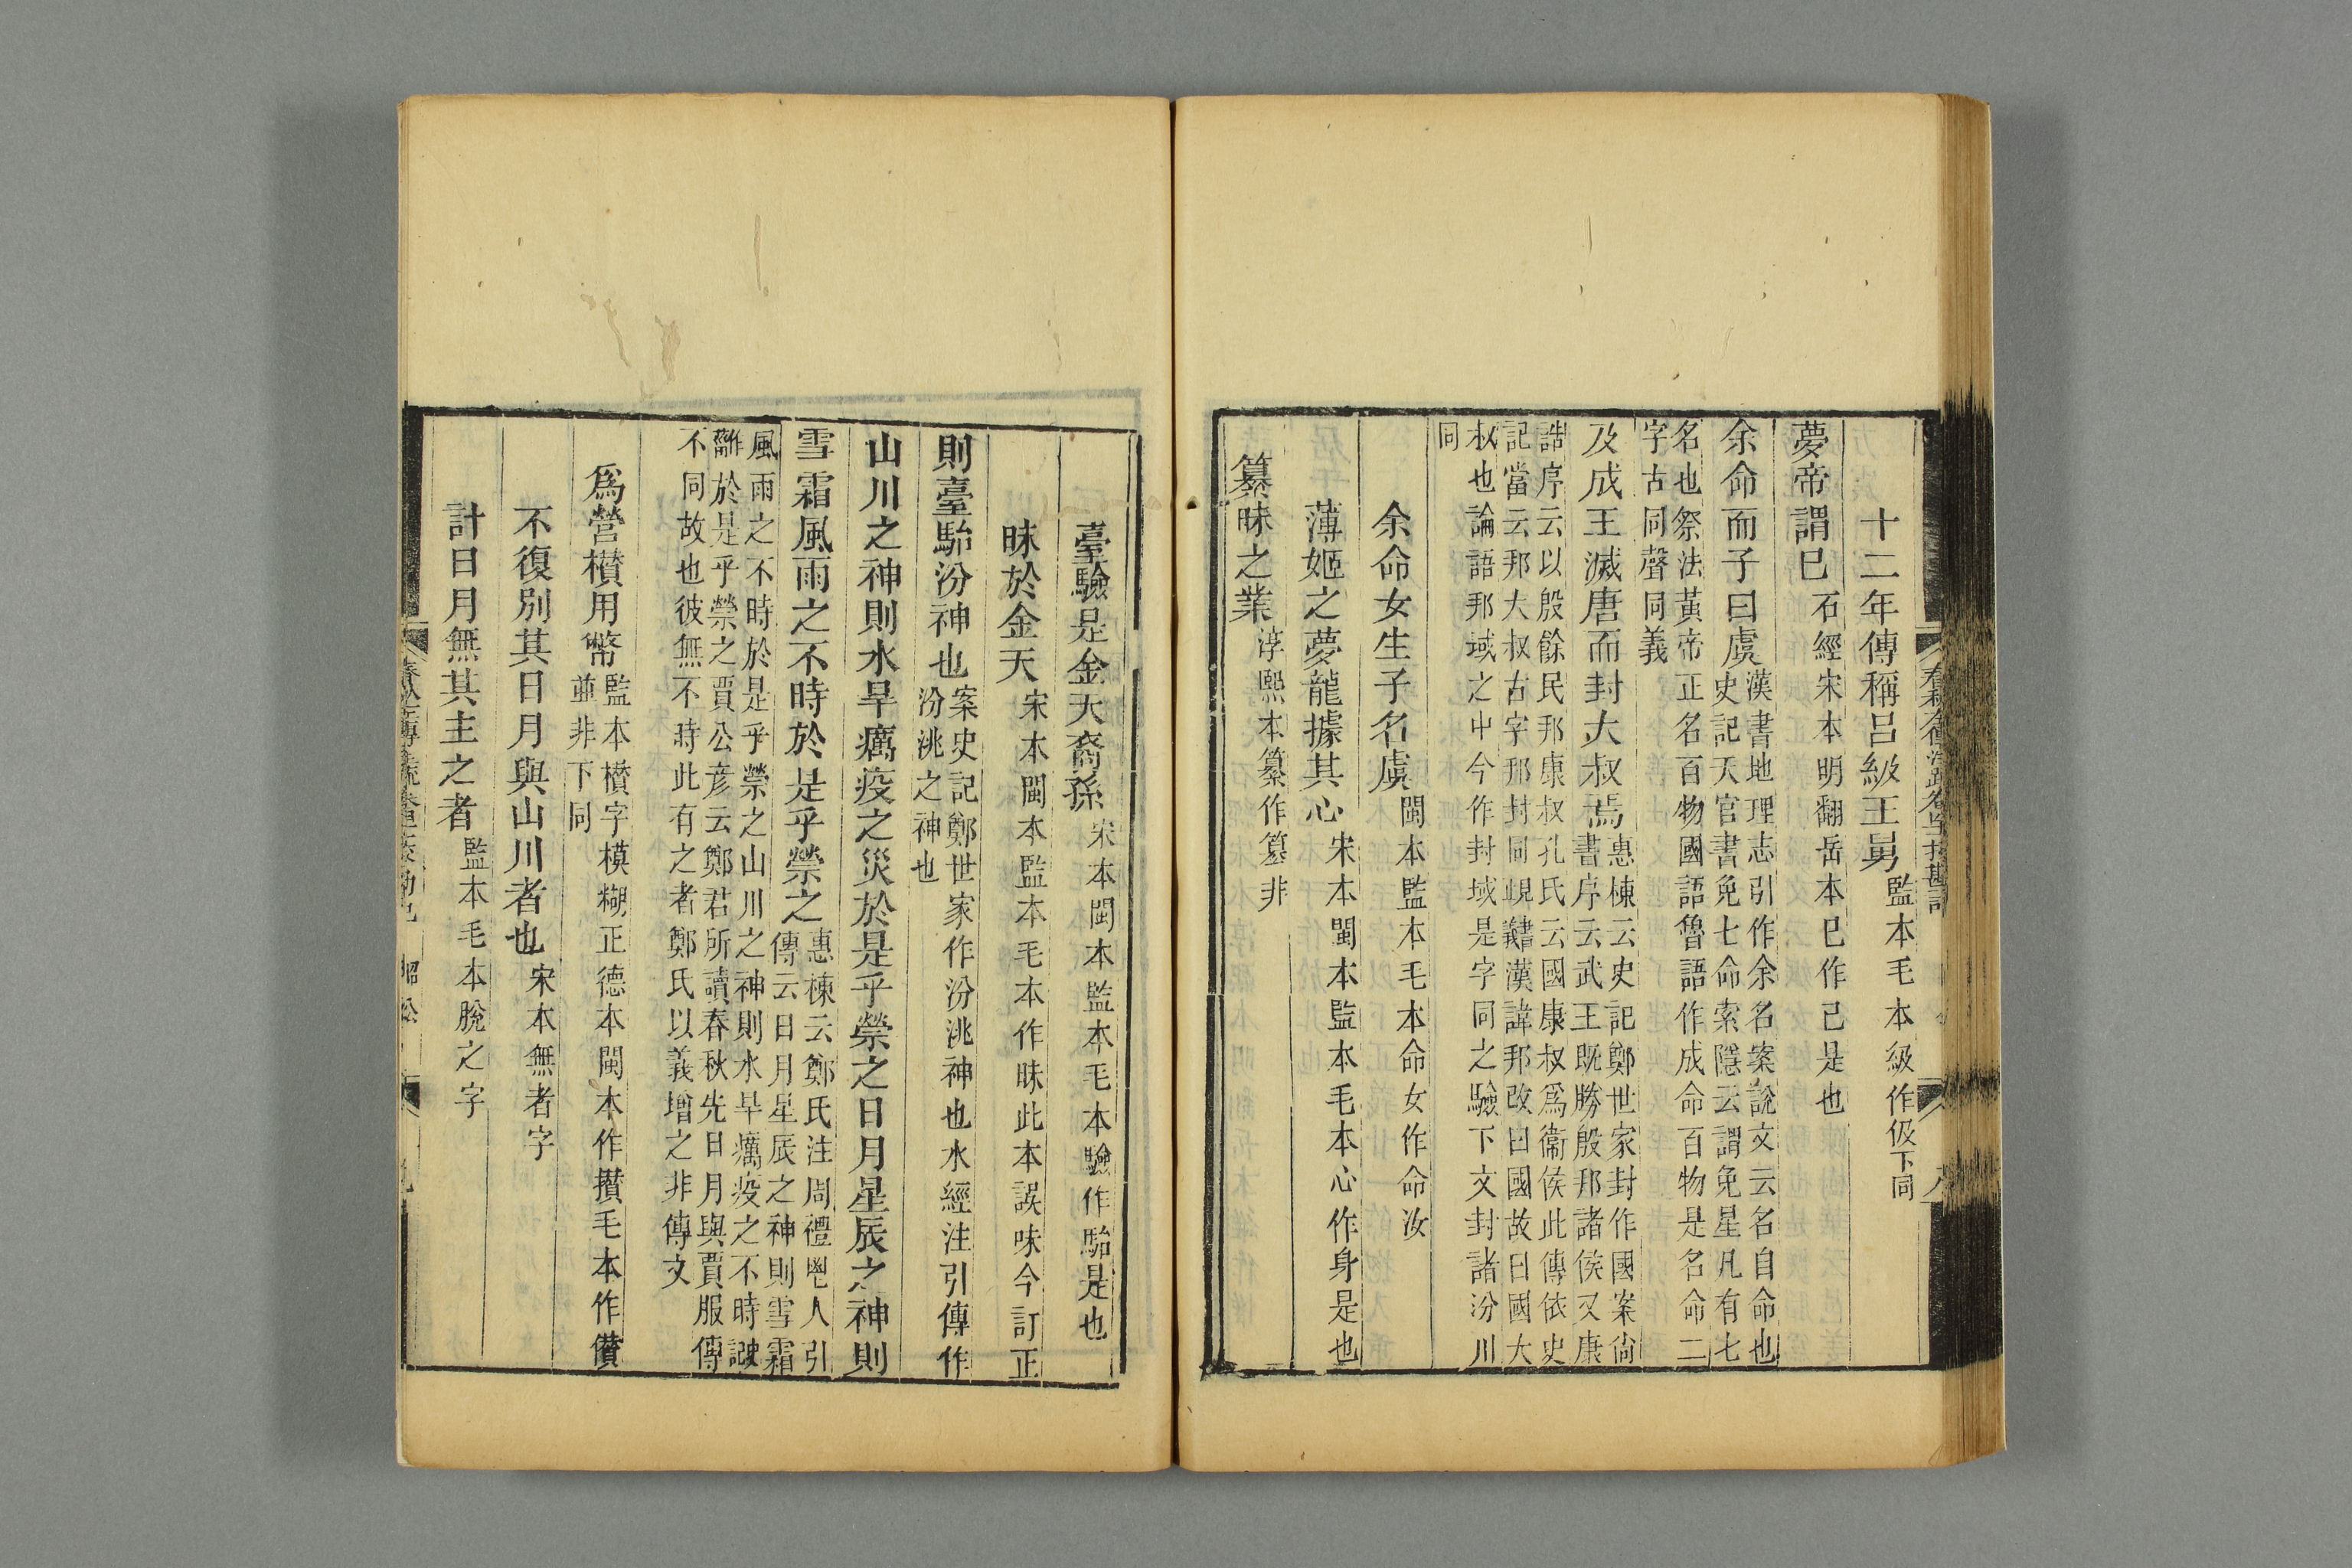 十二年傳稱呂級王舅監本毛本級作伋下同
夢帝謂巳石經宋本明翻岳本巳作己是也
余命而子曰虞漢書地理志引作余名案說文云名自命也
史記天官書免七命索隱云謂免星凡有七
名也祭法黃帝正名百物國語魯語作成命百物是名命二
字古同聲同義
及成王滅唐而封大叔焉惠棟云史記鄭世家封作國案尙
書序云武王既勝殷邦諸侯又康
誥序云以殷餘民邦康叔孔氏云國康叔爲衞侯此傳依史
記當云邦大叔古字邦封同峴䜿漢諱邦改曰國故曰國大
叔也論語邦域之中今作封域是字同之驗下文封諸汾川
同
余命女生子名虞閩本監本毛本命女作命汝
薄姬之夢龍據其心宋本閩本監本毛本心作身是也
纂昧之業淳熙本纂作篡非
臺驗是金天裔孫宋本閩本監本毛本驗作駘是也
昧於金天宋本閩本監本毛本作昧此本誤味今訂正
則臺駘汾神也案史記鄭世家作汾洮神也水經注引傳作
汾洮之神也
山川之神則水旱癘疫之災於是乎禜之日月星辰之神則
雪霜風雨之不時於是乎禜之惠棟云鄭氏注周禮鬯人引
傳云日月星辰之神則雪霜
風雨之不時於是乎禜之山川之神則水旱癘疫之不時詖
離於是乎禜之賈公彥云鄭君所讀春秋先日月與賈服傳
不同故也彼無不時此有之者鄭氏以義增之非傳文
爲營欑用幣監本欑字模糊正德本閩本作攢毛本作儹
並非下同
不復別其日月與山川者也宋本無者字
計日月無其主之者監本毛本脫之字